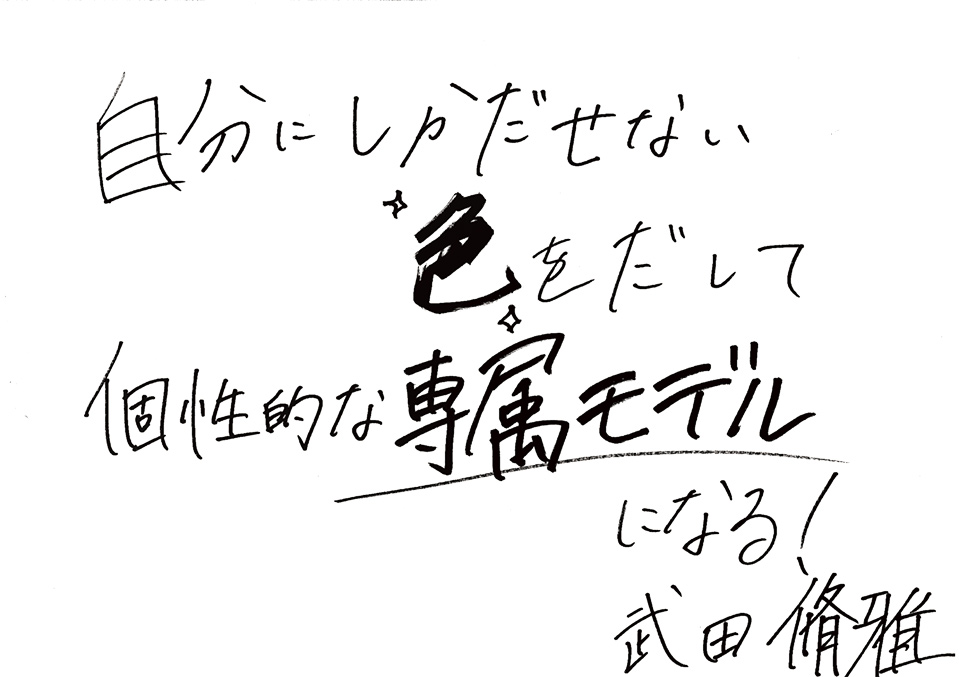 自分にしかだせない
色をだして
個性的な専属モデル
になる!
武田脩雅